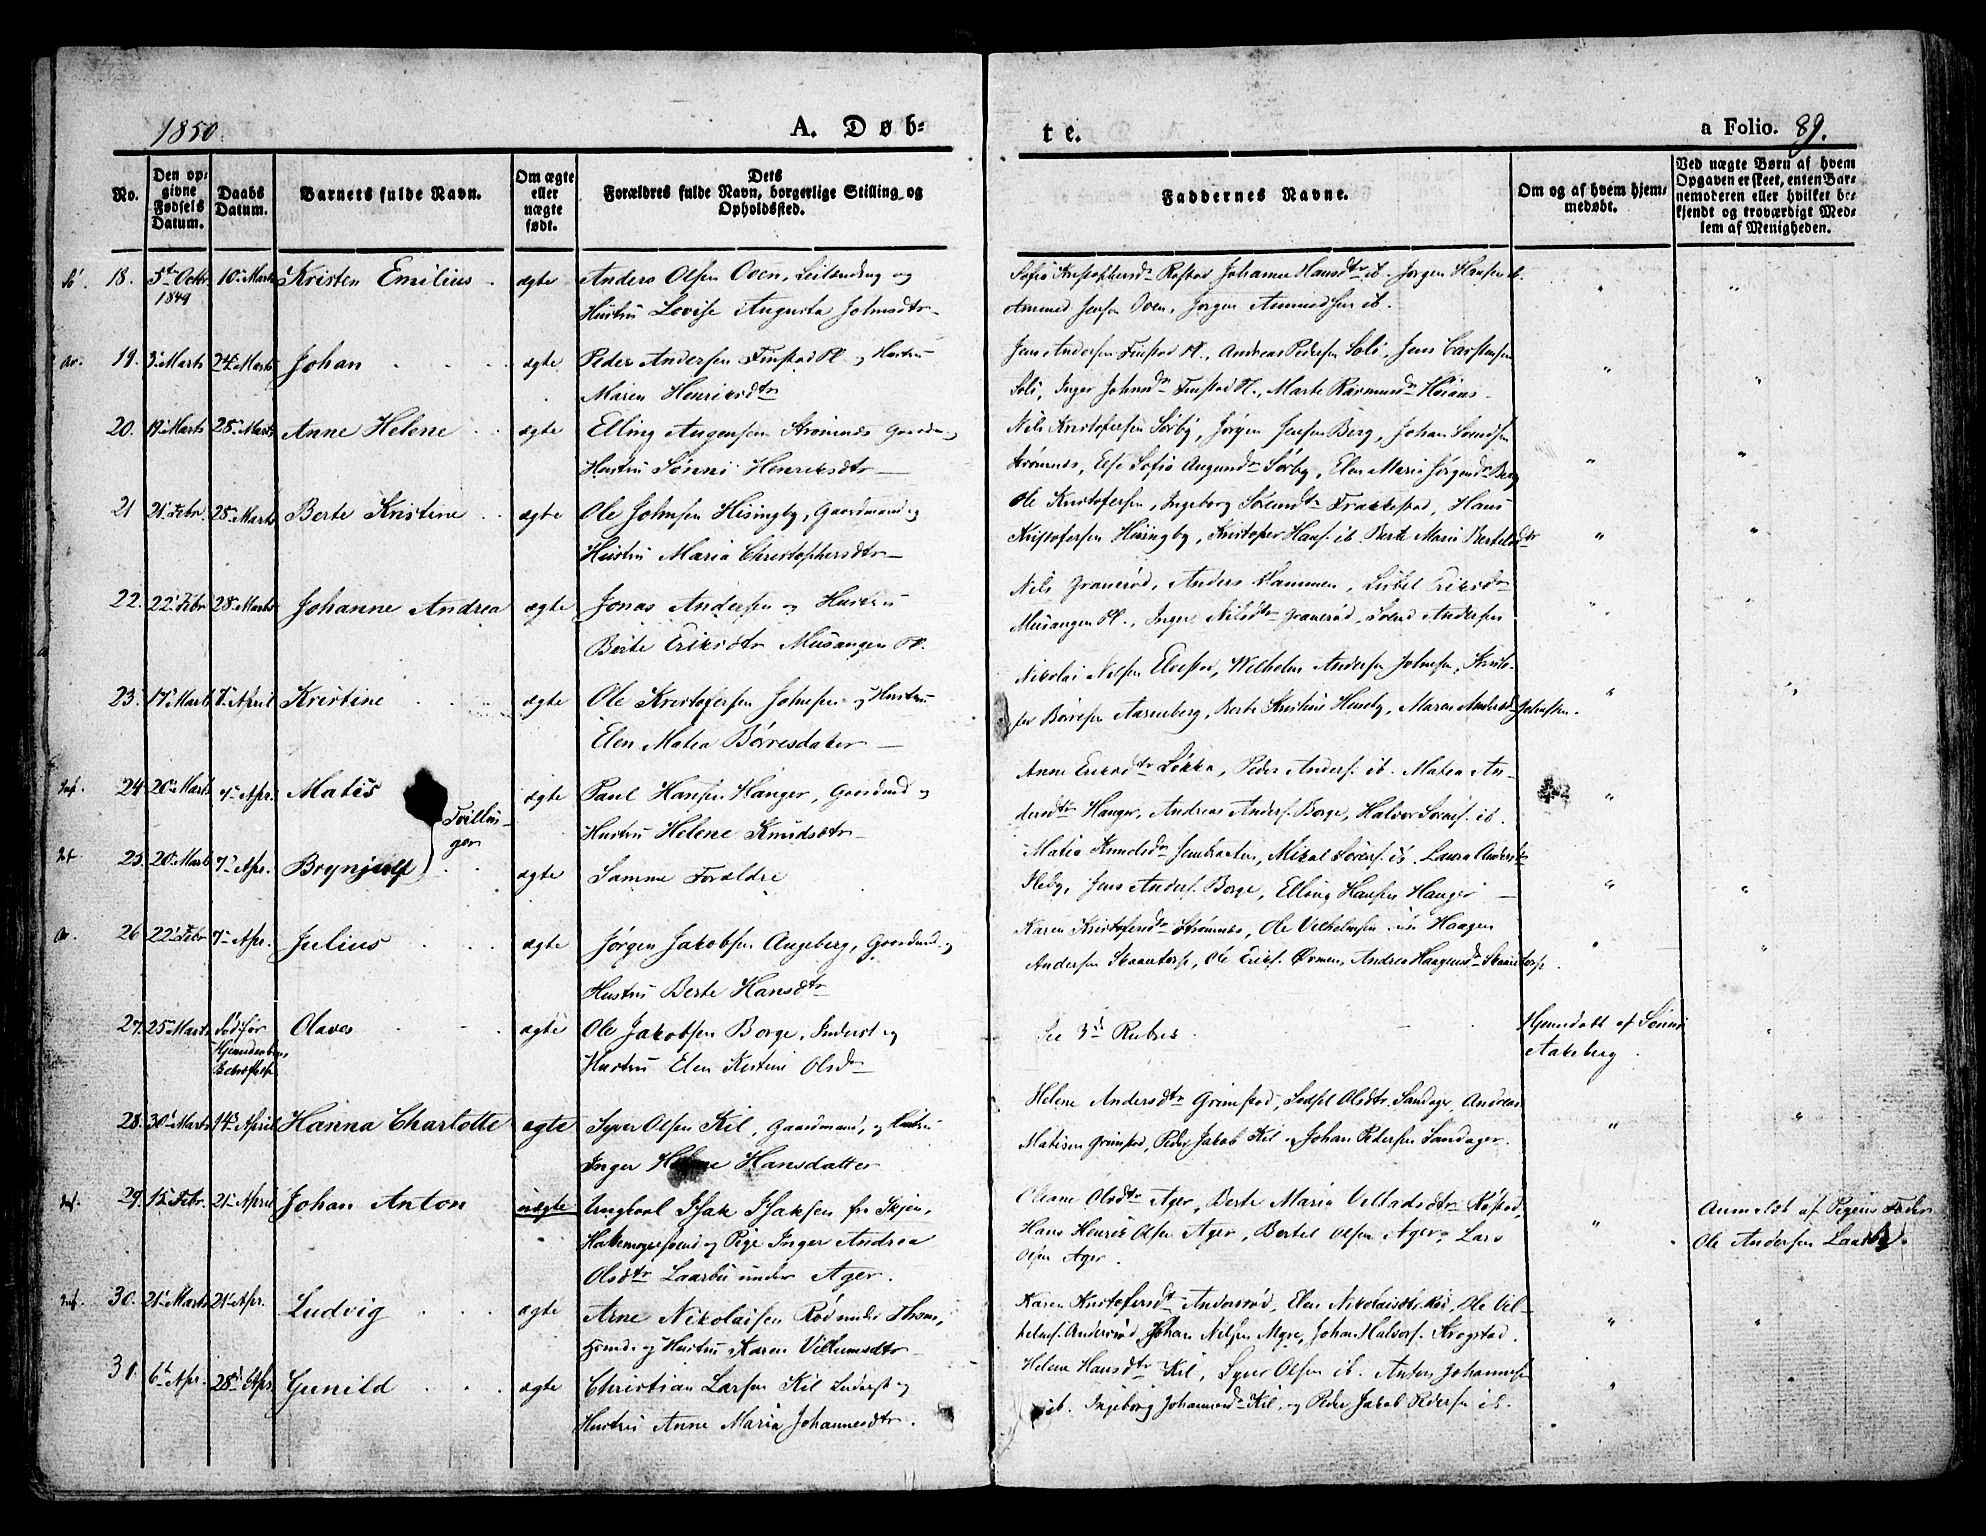 1850.
A. Døb-
te.
a Folio. 89.
No.
Den op-
givne
Fødsels
Datum.
Daabs
Datum.
Barnets fulde Navn.
Om ægte
eller
uægte
født.
Dets
Forældres fulde Navn, borgerlige Stilling og
Opholdssted.
Faddernes Navne.
Om og af hvem hjem-
medøbt.
Ved uægte Børn af hvem
Opgaven er skeet, enten Bar-
nemoderen eller hvilket be-
kjendt og troværdigt Med-
lem af Menigheden.
18. 5te Octbr 10. Marts Kristen Emilius ægte Anders Olsen Oven, Leilending og
1849
Hustru Lovise Augusta Johnsdtr
Sofia Kristophersdr Rostad Johanne Hansdtr ib. Jørgen Hansen ib.
Ammed Jensen Oven, Jørgen Ammedsen ib.
19. 3. Marts 24. Marts Johan ægte Peder Andersen Finstad Pl. og Hustru
Maren Henriksdtr
Jens Andersen Finstad Pl., Andreas Pedersen Soli, Jens Carstensen
Soli, Inger Johnsdr Finstad Pl., Marte Rasmusdr
20. 19. Marts 28. Marts Anne Helene ægte Elling Augensen Strømnes Gaardm. og
Hustru Sønni Henriksdtr
Nils Kristofersen Sørby, Jørgen Jensen Berg, Johan Svendsen
Strømnes, Else Sofia Augundr Sørby, Elen Maria Jørgensdr Berg
21 21. Febr. 28. Marts Berte Kristine ægte Ole Johnsen Hisingby, Gaardmand og
Hustru Maria Christophersdtr
Ole Kristofersen, Ingeborg Frakkestad, Hans
Kristofersen Hisingby, Kristoper Hans. ib. Berte Mari Bertelsdtr
22. 22. Febr 28. Marts Johanne Andrea ægte Jonas Andersen og Hustru
Berte Eriksdtr Musangen Pl.
Nils Granerød, Anders Hammen, Lisbet Eriksdr
Musangen Pl., Inger Nilsdtr Granerød, Svend Andersen
23. 17. Marts 1. April Kristine ægte Ole Kristofersen Johnsen og Hustru
Elen Matea Børresdater
Nikolai Nilsen Elvestad, Wilhelm Andersen Johnsen,
Børresen Aasenberg, Berte Kristine Heneby, Maren Andersdr Johnsen.
24. 20. Marts 7. Apr. Matis ægte Paul Hansen Hanger, Gaardmd og
Tvillin-
ger
Hustru Helene Knudsdtr
Anne Eriksdtr Løkka, Peder Anders. ib. Matea An-
dersdtr Hanger, Andreas Anders. Borge, Halvor Sørens. ib.
25. 20. Marts 7. Apr. Brynjulf ægte Samme Forældre
Matea Knudsdr Jembraaten, Mikal Sørens. ib. Laura Andersdr
Heby, Jens Anders. Borge, Elling Hansen Hanger
26 22. Febr 7. Apr. Julius ægte Jørgen Jakobsen Augeberg, Gaardmd. og
Hustru Berte Hansdtr
Karen Kristofersdr Strømnes, Ole Vilhelmsen Haagen
Andersen Skaantorp, Ole Eriks. Ørmen, Andrea Haagensdr Skaantorp.
27. 25. Marts Olaves ægte Ole Jakobsen Borge, Inderst og
Død før
Hjemdaaben
Bekræftelse
Hustru Elen Kristine Olsdr
See 3de Rubrik.
Hjemdøbt af Sønni
Aakeberg.
28. 30. Marts 14. April Hanna Charlotte ægte Syver Olsen Kil, Gaardmand, og Hustru
Inger Helene Hansdatter
Helene Andersdtr Grimstad, Olsdtr. Sandager, Andreas
Matisen Grimstad, Peder Jakob Kil og Johan Pedersen Sandager.
29. 15. Febr. 21. April Johan Anton uægte Ungkarl Isak Isaksen fra Skjen,
og Pige Inger Andrea
Olsdtr Laarbu under Ager.
Oleane Olsdtr Ager, Berte Maria Røstad,
Hans Henrik Olsen Ager, Bertel Olsen Ager, Lars
Olsen Ager.
Anmeldt af Pigens Fader
Ole Andersen Laarbu.
30. 21. Marts 21. Apr. Ludvig ægte Arne Nikolaisen Rød under Throm,
Hmd. og Hustru Karen Vilhumsdtr
Karen Kristofersdr Andersrød, Elen Nikolaisdtr. Rød, Ole Vil-
helms. Andersrød Johan Nilsen Myre, Johan Halvors. Krogstad.
31. 6. Apr. 28. Apr. Gunild ægte Christian Larsen Kil Inderst og
Hustru Anne Maria Johannesdtr.
Helene Hansdtr Kil, Syver Olsen ib. Anton Johannesen
ib. Ingeborg Johannesdr Kil, og Peder Jakob Pedersen ib.